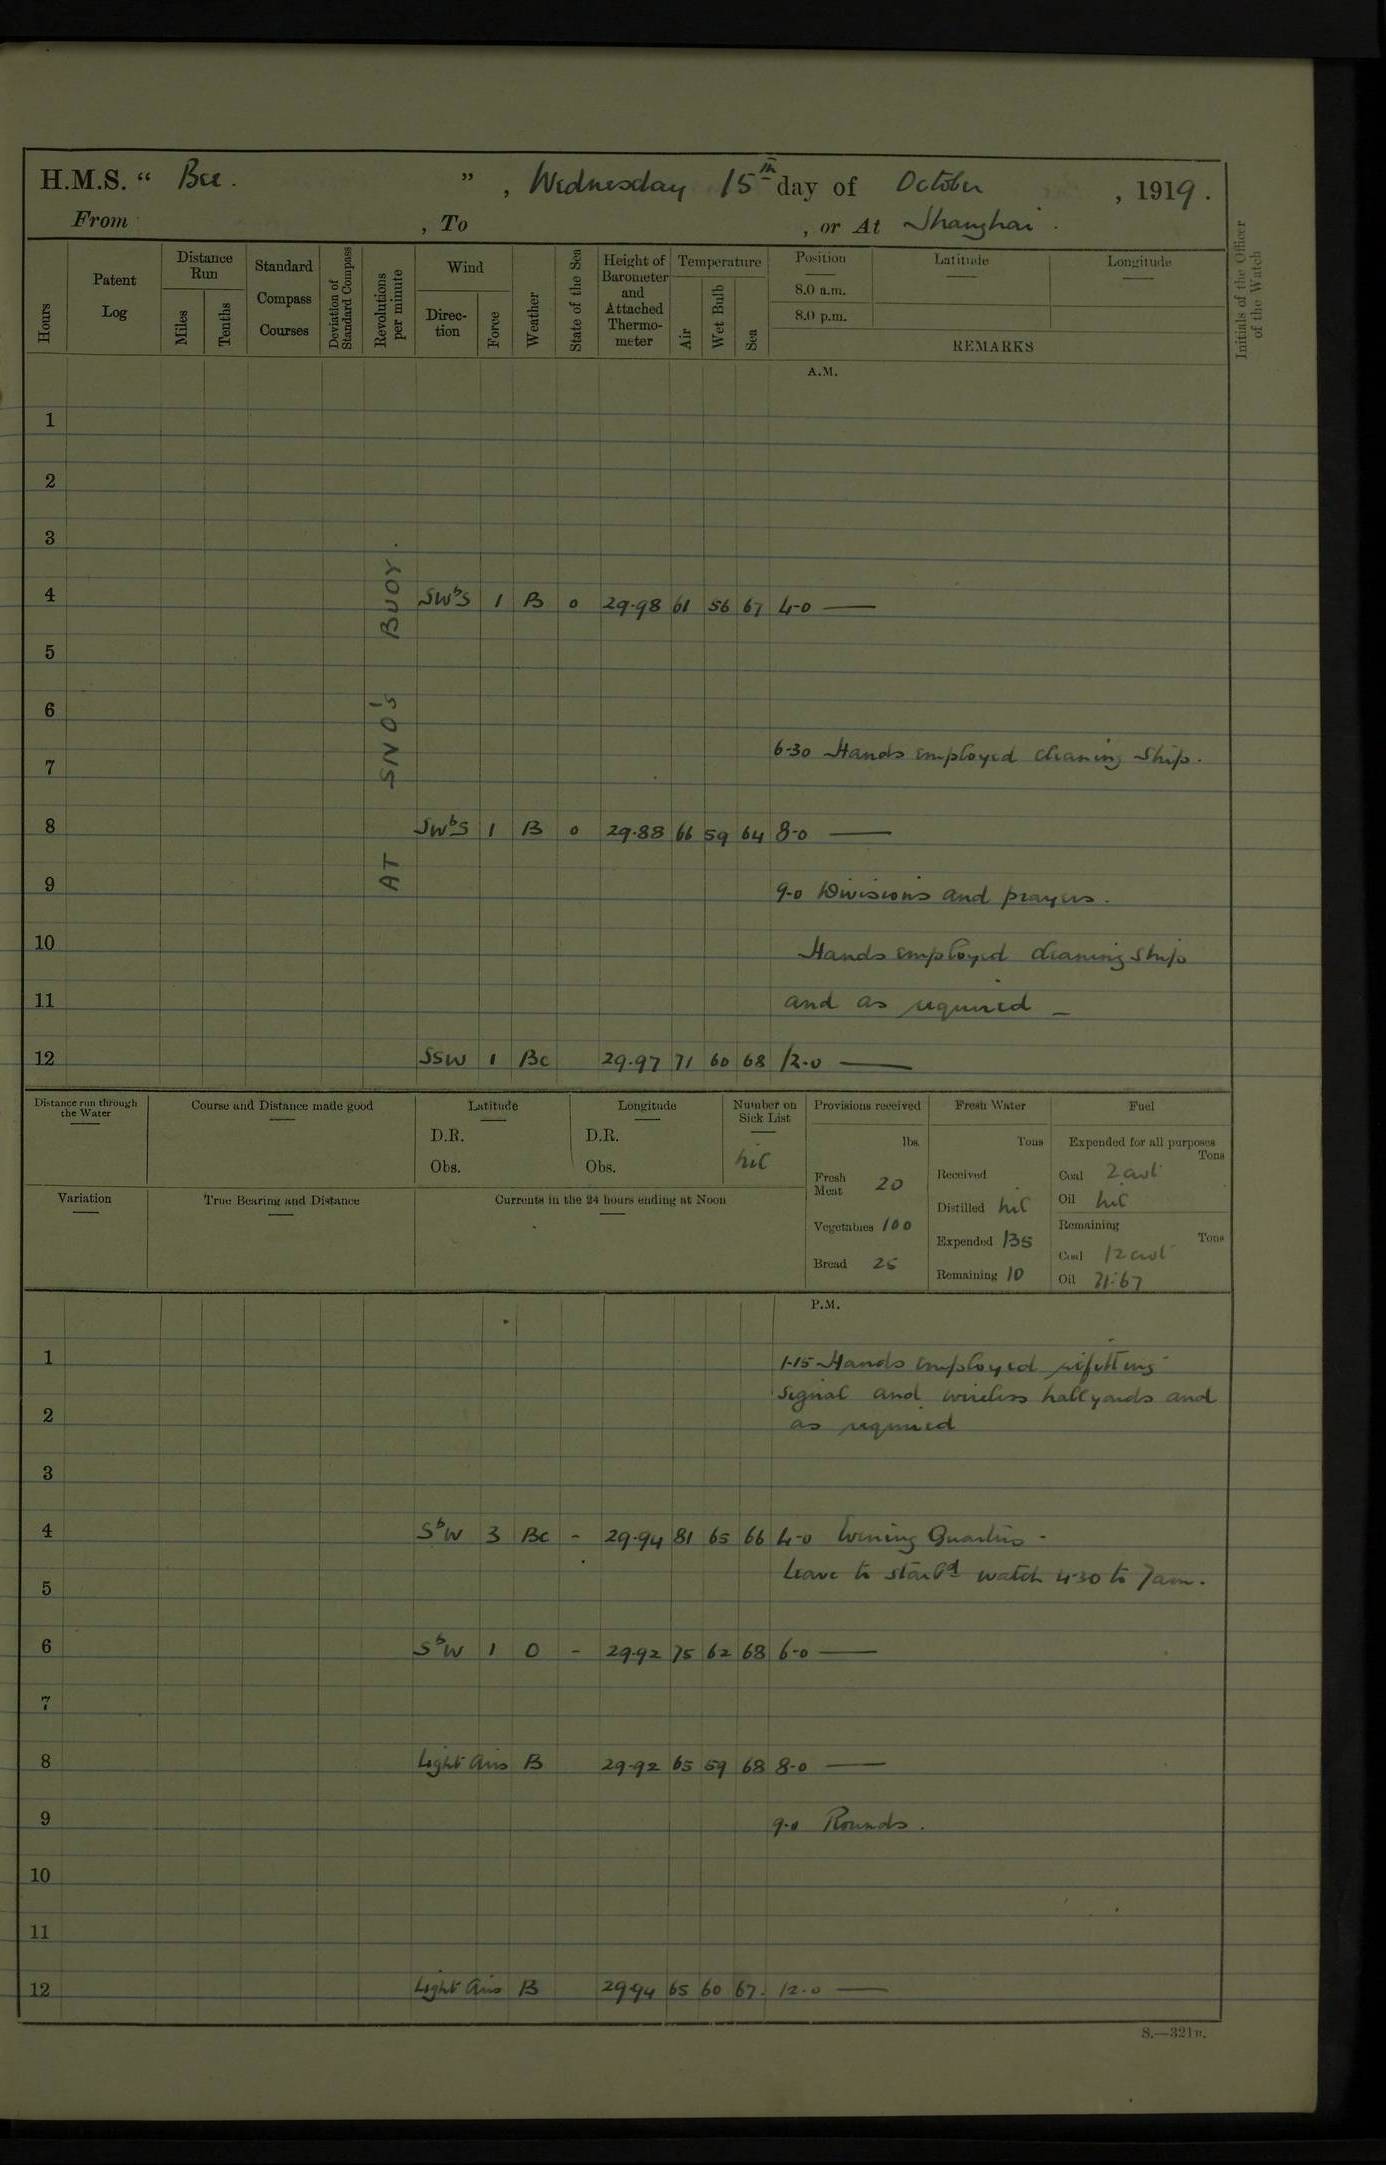 H.M.S. “ Bee. ” , Wednesday 15th day of October , 1919.
From , To , or At Shanghai.
Hours
Patent Log
Distance Run
Miles
Tenths
Standard Compass Courses
Deviation of Standard Compass
Revolutions per minute
Wind
Direc-tion
Force
Weather
State of the Sea
Height of Barometer and Attached Thermo-meter
Temperature
Air
Wet Bulb
Sea
Position
8.0 a.m.
8.0 p.m.
Latitude
Longitude
REMARKS
Initials of the Officer of the Watch
A.M.
AT SNO's BUOY.
1
2
3
4 SWbS 1 B 0 29.98 61 56 67 4-0 —
5
6
6-30 Hands employed cleaning Ship.
7
8 SWbS 1 B 0 29.88 66 59 64 8-0 —
9 9-0 Divisions and prayers.
10 Hands employed cleaning ship
11 and as required —
12 SSW 1 Bc 29.97 71 60 68 12.0 —
Distance run through the Water
Course and Distance made good
Latitude
D.R.
Obs.
Longitude
D.R.
Obs.
Number on Sick List
nil
Provisions received
lbs.
Fresh Meat 20
Vegetables 100
Bread 25
Fresh Water
Tons
Received
Distilled nil
Expended 135
Remaining 10
Fuel
Expended for all purposes
Tons
Coal 2 cwt
Oil nil
Remaining
Tons
Coal 12 cwt
Oil 71.67
Variation
True Bearing and Distance
Currents in the 24 hours ending at Noon
P.M.
1 1-15 Hands employed refitting
signal and wireless hallyards and
2 as required
3
4 SbW 3 Bc - 29.94 81 65 66 4-0 Evening Quarters -
Leave to starbd watch 4-30 to 7am.
5
6 SbW 1 O - 29.92 75 62 68 6-0 —
7
8 Light airs B 29.92 65 59 68 8-0 —
9 9-0 Rounds.
10
11
12 Light airs B 29.94 65 60 67. 12.0 —
S.—321B.